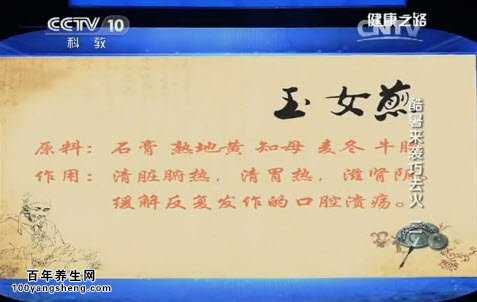 CCTV 10
科教
健康之路
CNTV
玉女煎
原料：石膏 熟地黄 知母 麦冬 牛膝
作用：清脏腑热，清胃热，滋肾阴
缓解反复发作的口腔溃疡。
酷暑来袭巧去火
百年养生网
100yangsheng.com